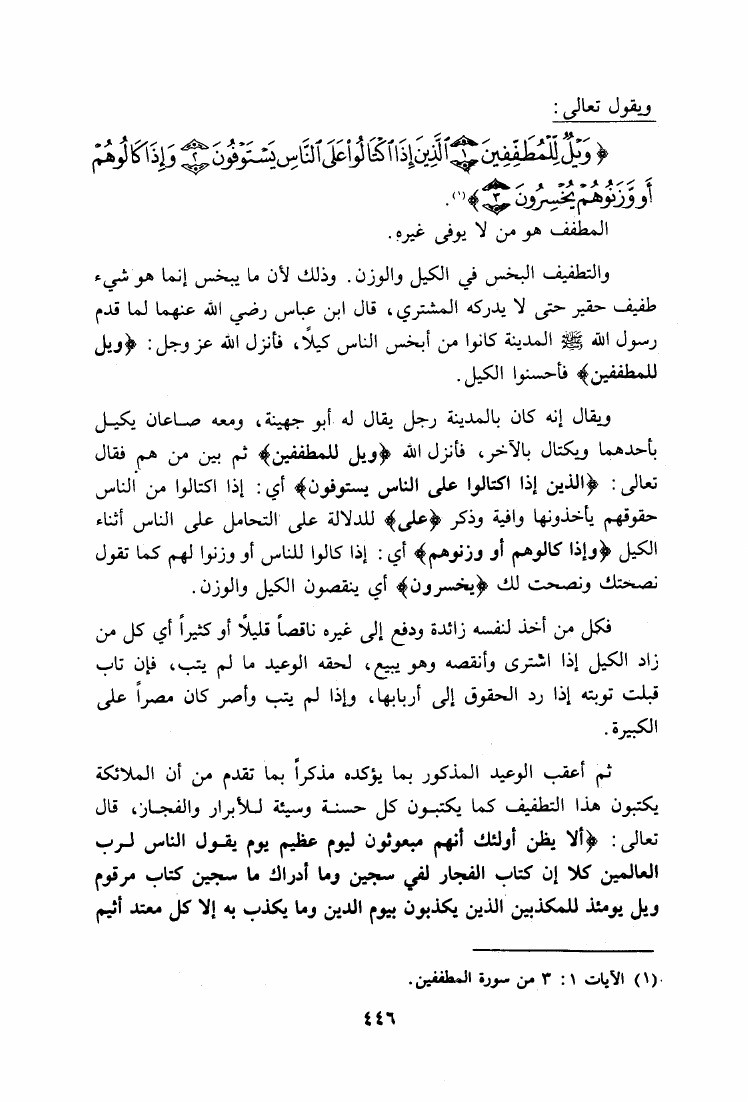 ويقول تعالى:
﴿ وَيْلٌ لِّلْمُطَفِّفِينَ ١ ٱلَّذِينَ إِذَا ٱكْتَالُوا۟ عَلَى ٱلنَّاسِ يَسْتَوْفُونَ ٢ وَإِذَا كَالُوهُمْ
أَو وَّزَنُوهُمْ يُخْسِرُونَ ٣ ﴾(١).
المطفف هو من لا يوفى غيره.
والتطفيف البخس في الكيل والوزن. وذلك لأن ما يبخس إنما هو شيء
طفيف حقير حتى لا يدركه المشتري، قال ابن عباس رضي الله عنهما لما قدم
رسول الله ﷺ المدينة كانوا من أبخس الناس كيلًا، فأنزل الله عز وجل: ﴿ويل
للمطففين﴾ فأحسنوا الكيل.
ويقال إنه كان بالمدينة رجل يقال له أبو جهينة، ومعه صاعان يكيل
بأحدهما ويكتال بالآخر، فأنزل الله ﴿ويل للمطففين﴾ ثم بين من هم فقال
تعالى: ﴿الذين إذا اكتالوا على الناس يستوفون﴾ أي: إذا اكتالوا من الناس
حقوقهم يأخذونها وافية وذكر ﴿على﴾ للدلالة على التحامل على الناس أثناء
الكيل ﴿وإذا كالوهم أو وزنوهم﴾ أي: إذا كالوا للناس أو وزنوا لهم كما تقول
نصحتك ونصحت لك ﴿يخسرون﴾ أي ينقصون الكيل والوزن.
فكل من أخذ لنفسه زائدة ودفع إلى غيره ناقصاً قليلًا أو كثيراً أي كل من
زاد الكيل إذا اشترى وأنقصه وهو يبيع، لحقه الوعيد ما لم يتب، فإن تاب
قبلت توبته إذا رد الحقوق إلى أربابها، وإذا لم يتب وأصر كان مصراً على
الكبيرة.
ثم أعقب الوعيد المذكور بما يؤكده مذكراً بما تقدم من أن الملائكة
يكتبون هذا التطفيف كما يكتبون كل حسنة وسيئة للأبرار والفجار، قال
تعالى: ﴿ألا يظن أولئك أنهم مبعوثون ليوم عظيم يوم يقول الناس لرب
العالمين كلا إن كتاب الفجار لفي سجين وما أدراك ما سجين كتاب مرقوم
ويل يومئذ للمكذبين الذين يكذبون بيوم الدين وما يكذب به إلا كل معتد أثيم
(١) الآيات ١: ٣ من سورة المطففين.
٤٤٦